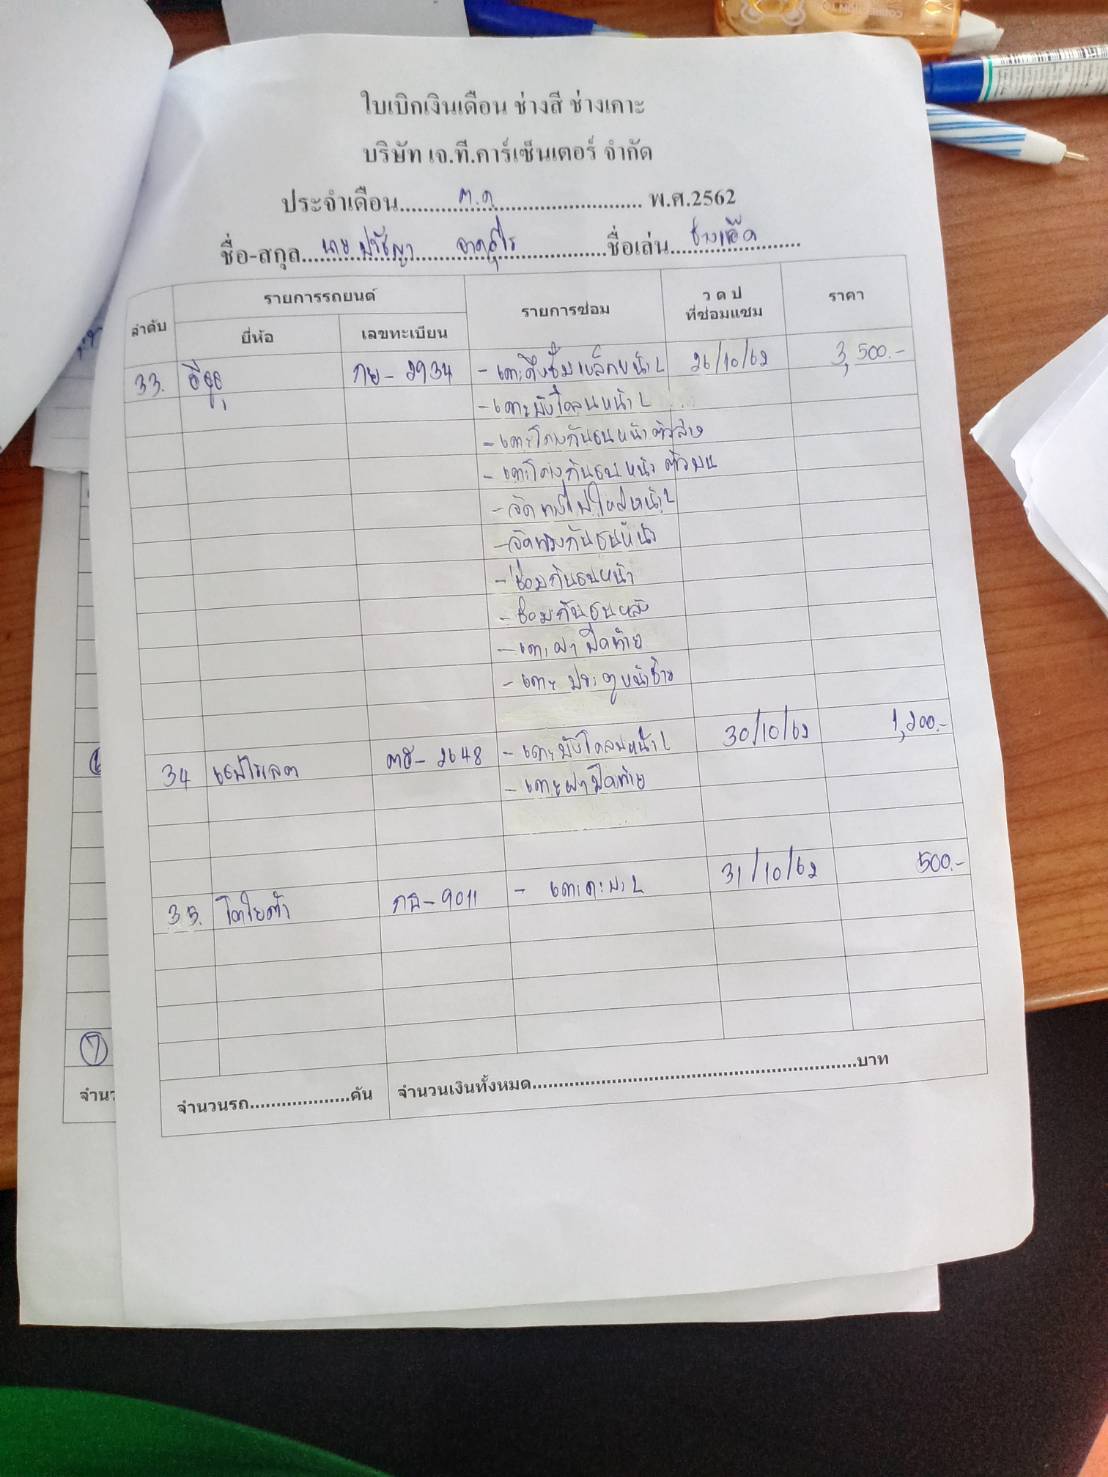 ใบเบิกเงินเดือน ช่างสี ช่างเคาะ
บริษัท เจ.ที.คาร์เซ็นเตอร์ จำกัด
ประจำเดือน ต.ค พ.ศ.2562
ชื่อ-สกุล นาย ปรัชญา ชื่อเล่น
ลำดับ รายการรถยนต์ รายการซ่อม ว ด ป ที่ซ่อมแซม ราคา
ยี่ห้อ เลขทะเบียน
33. อีซูซุ กษ - 2934 - เคาะดึงซุ้มหน้า L 26/10/62 3,500.-
- เคาะบังโคลนหน้า L
- เคาะโครงกันชนหน้าตัวล่าง
- เคาะโครงกันชนหน้า ตัวบน
- จัดทรงไฟใหญ่หน้า L
- จัดทรงกันชนหน้า
- ซ่อมกันชนหน้า
- ซ่อมกันชนหลัง
- เคาะฝาปิดท้าย
- เคาะ ประตูหน้าซ้าย
34 เชฟโรเลต - 2648 - เคาะบังโคลนหน้า L 30/10/62 1,200.-
- เคาะฝาปิดท้าย
35. โตโยต้า - 9011 - 31/10/62 500.-
จำนวนรถ คัน จำนวนเงินทั้งหมด บาท
7
จำนว